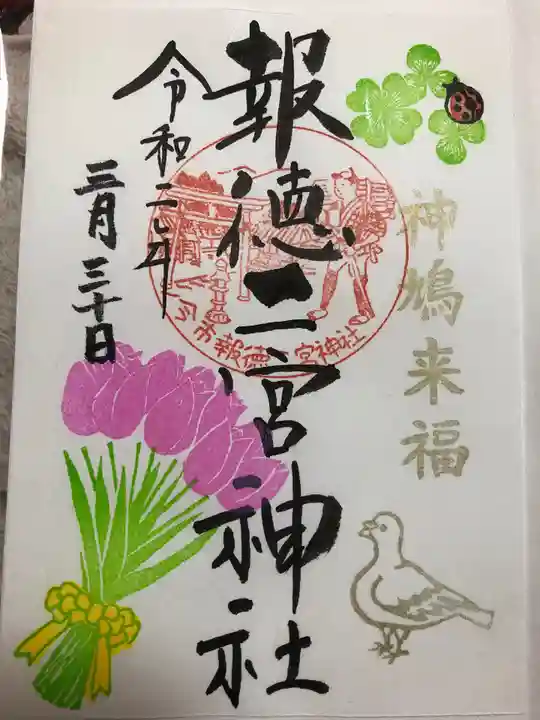 神鳩来福
報徳二宮神社
令和二年
三月三十日
今市報徳二宮神社